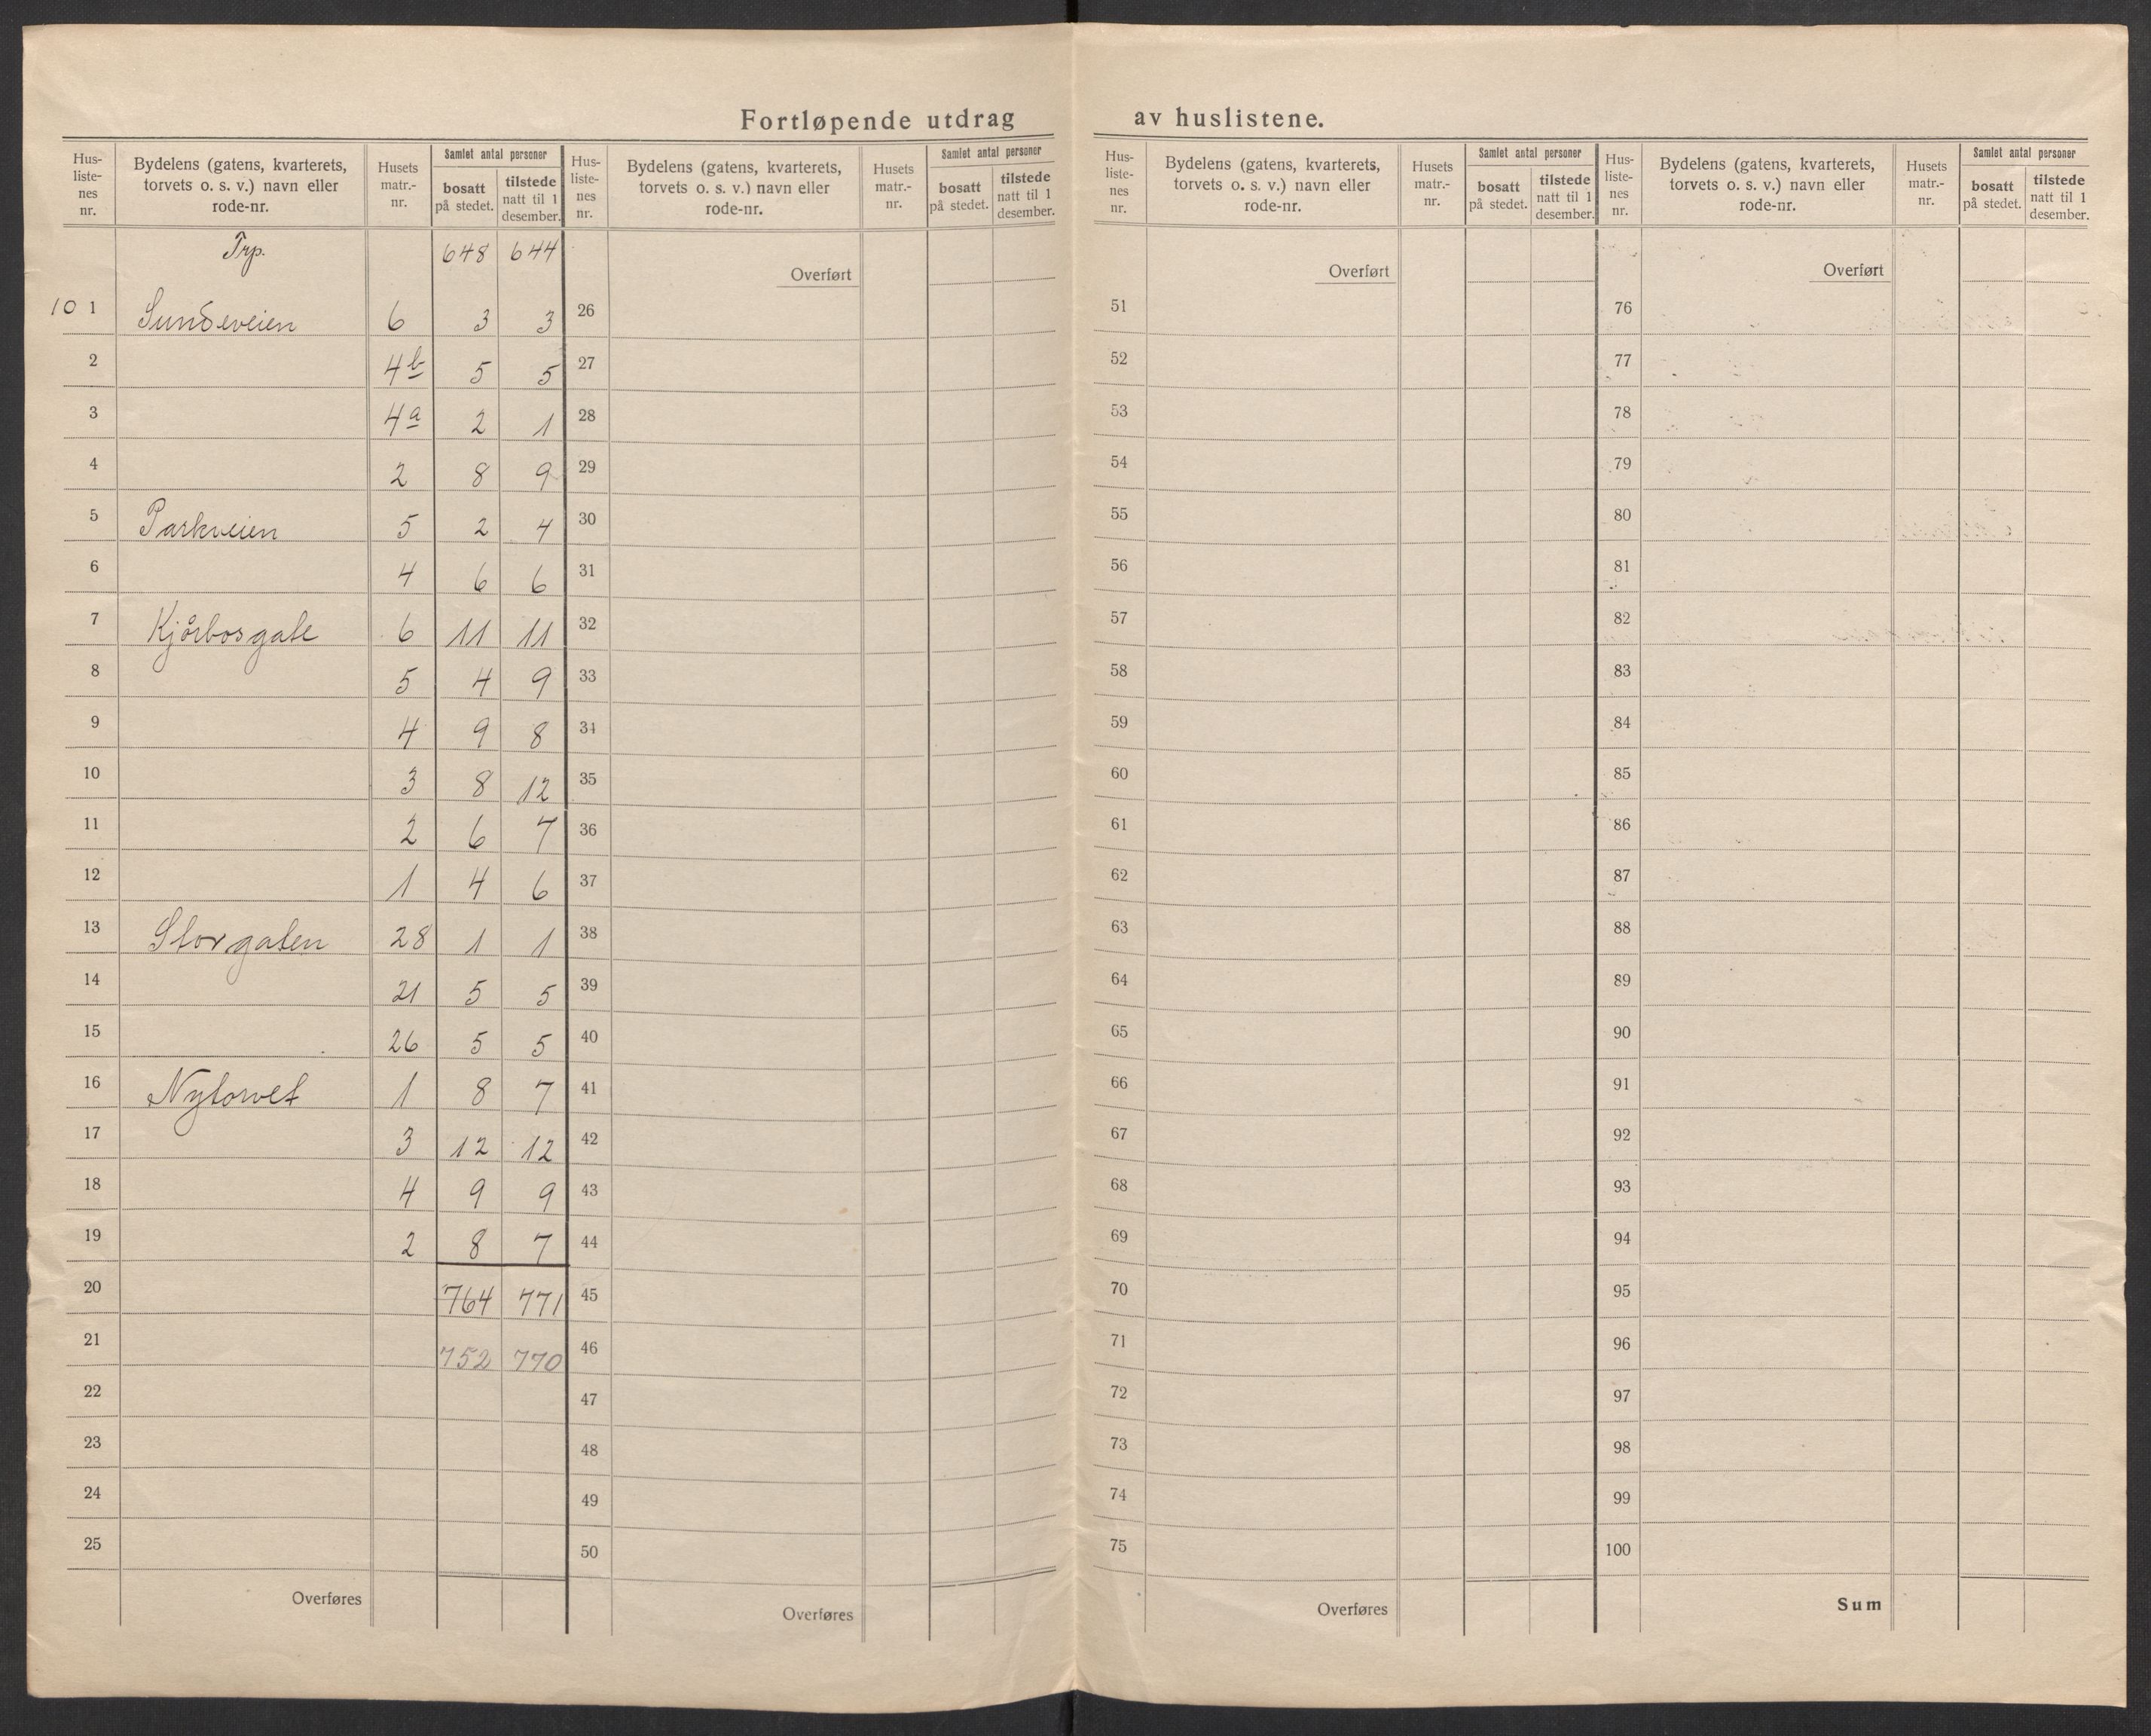 Fortløpende utdrag av huslistene.
Hus-liste-nes nr. Bydelens (gatens, kvarterets, torvets o. s. v.) navn eller rode-nr. Husets matr.-nr. Samlet antal personer bosatt på stedet. tilstede natt til 1 desember.
Hus-liste-nes nr. Bydelens (gatens, kvarterets, torvets o. s. v.) navn eller rode-nr. Husets matr.-nr. Samlet antal personer bosatt på stedet. tilstede natt til 1 desember.
Hus-liste-nes nr. Bydelens (gatens, kvarterets, torvets o. s. v.) navn eller rode-nr. Husets matr.-nr. Samlet antal personer bosatt på stedet. tilstede natt til 1 desember.
Hus-liste-nes nr. Bydelens (gatens, kvarterets, torvets o. s. v.) navn eller rode-nr. Husets matr.-nr. Samlet antal personer bosatt på stedet. tilstede natt til 1 desember.
Trp. 648 644 Overført Overført Overført
10 1 Sundeveien 6 3 3 26 51 76
2 4b 5 5 27 52 77
3 4a 2 1 28 53 78
4 2 8 9 29 54 79
5 Parkveien 5 2 4 30 55 80
6 4 6 6 31 56 81
7 Kjørbosgate 6 11 11 32 57 82
8 5 4 9 33 58 83
9 4 9 8 34 59 84
10 3 8 12 35 60 85
11 2 6 7 36 61 86
12 1 4 6 37 62 87
13 Storgaten 28 1 1 38 63 88
14 21 5 5 39 64 89
15 26 5 5 40 65 90
16 Nytorvet 1 8 7 41 66 91
17 3 12 12 42 67 92
18 4 9 9 43 68 93
19 2 8 7 44 69 94
20 764 771 45 70 95
21 752 770 46 71 96
22 47 72 97
23 48 73 98
24 49 74 99
25 50 75 100
Overføres Overføres Overføres Sum